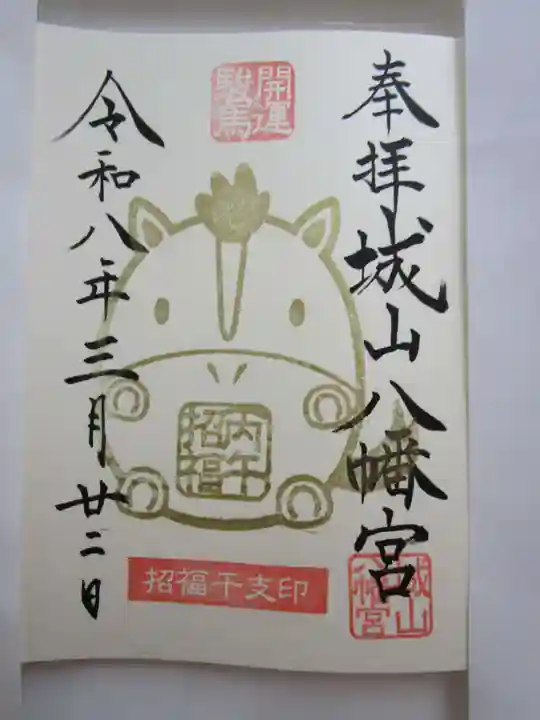 奉拝
城山八幡宮
開運
駿馬
丙午
招福
招福干支印
城山
令和八年三月廿二日